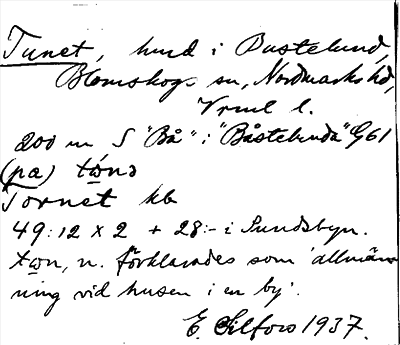 Tunet, hmd i Båstelund,
Blomskogs sn, Nordmarks hd,
Vrml l.
200 m S "Bå" i "Båstelunda" G61
(på) tωnə
Tornet kb
49:12 x 2 + 28:- i Sundsbyn.
tωn, n. förklarades som 'allmän-
ning vid husen i en by'.
E. Silfors 1937.